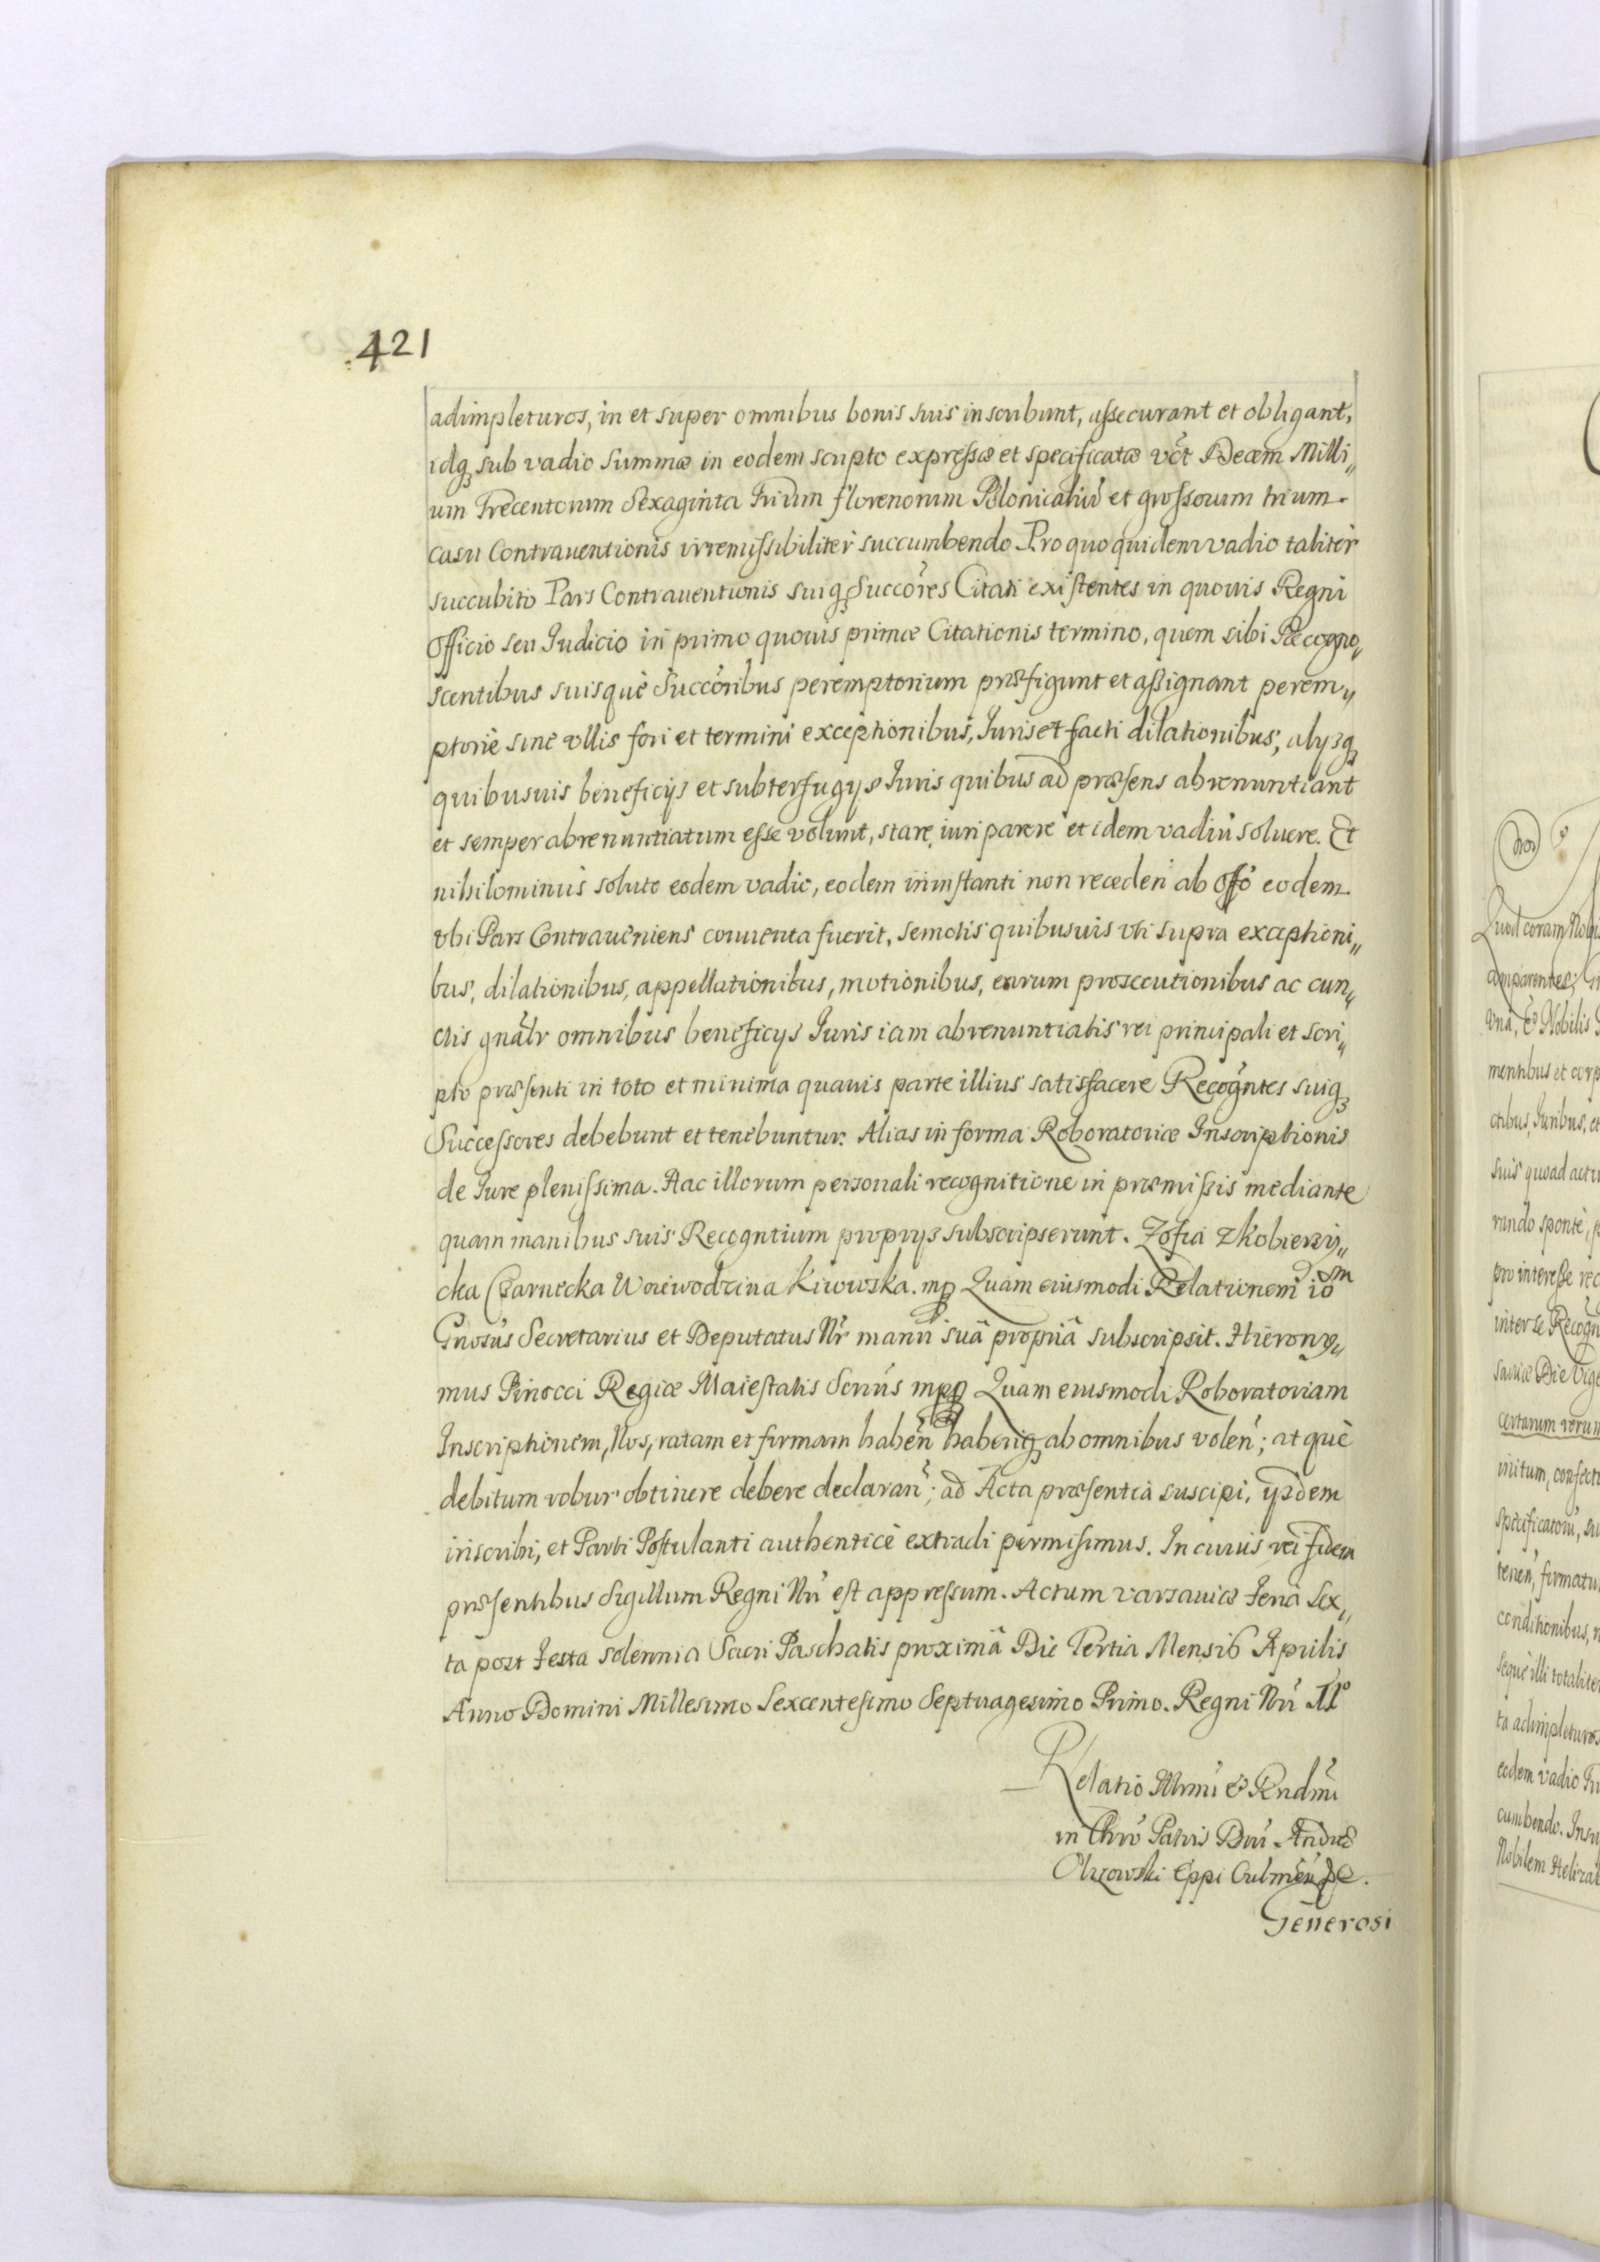 421
adimpleturos, in et super omnibus bonis suis inscribunt, assecurant et obligant,
idq3 sub vadio Summæ in eodem scripto expressæ et specificatæ vc̃t Decem Milli„
um Trecentorum Sexaginta Trium florenorum Polonicaliũ et grossorum trium.
casu Contrauentionis irremissibiliter succumbendo. Pro quo quidem vadio taliter
succubito Pars Contrauentionis suiq3 Succõres Citati existentes in quouis Regni
Officio seu Iudicio in primo quouis primæ Citationis termino, quem sibi Recogno„
scentibus suisquè Succõribus peremptorium præfigunt et assignant perem„
ptoriè sine vllis fori et termini exceptionibus, Iuris et facti dilationibus, alysq3
quibusuis beneficijs et subterfugys Iuris quibus ad præsens abrenuntiant
et semper abrenuntiatum esse volunt, stare, iuri parere et idem vadiũ soluere. Et
nihilominus soluto eodem vadio, eodem in instanti non receden̄ ab Offo eodem
vbi Pars Contraueniens conuenta fuerit, semotis quibusuis vti supra exceptioni„
bus, dilationibus, appellationibus, motionibus, earum prosecutionibus ac cun„
ctis gnãlr omnibus beneficys Iuris iam abrenuntiatis rei principali et scri„
pto præsenti in toto et minima quauis parte illius satisfacere Recogntes suiq3
Successores debebunt et tenebuntur. Alias in forma Roboratoriæ Inscriptionis
de Iure plenissima. Hac illorum personali recognitione in præmissis mediante
quam manibus suis Recogntium proprys subscripserunt. Zofia z kobierzy„
cka Czarnecka Woiewodzina Kiiowska. mp Quam eiusmodi Relationem idem
Gnosus Secretarius et Deputatus Nr̃ manu suâ propriâ subscripsit. Hierony„
mus Pinocci Regiæ Maiestatis Scrius mpp Quam eiusmodi Roboratoriam
Inscriptionem, Nos, ratam et firmam habẽn haberiq3 ab omnibus volen̄; at què
debitum robur obtinere debere declaran̄; ad Acta præsentia suscipi, ysdem
inscribi, et Parti Postulanti authenticè extradi permisimus. In cuius rei fidem
præsentibus Sigillum Regni Nrĩ est appressum. Actum varsauiæ feria Sex„
ta post festa solennia Sacri Paschatis proximâ Die Tertia Mensis Aprilis
Anno Domini Millesimo Sexcentesimo Septuagesimo Primo. Regni Nrĩ IIº
Relatio Illrmi & Rndmi
in Chrõ Patris Dnĩ Andreæ
Olszowski Eppi Culmen &c.
Generosi